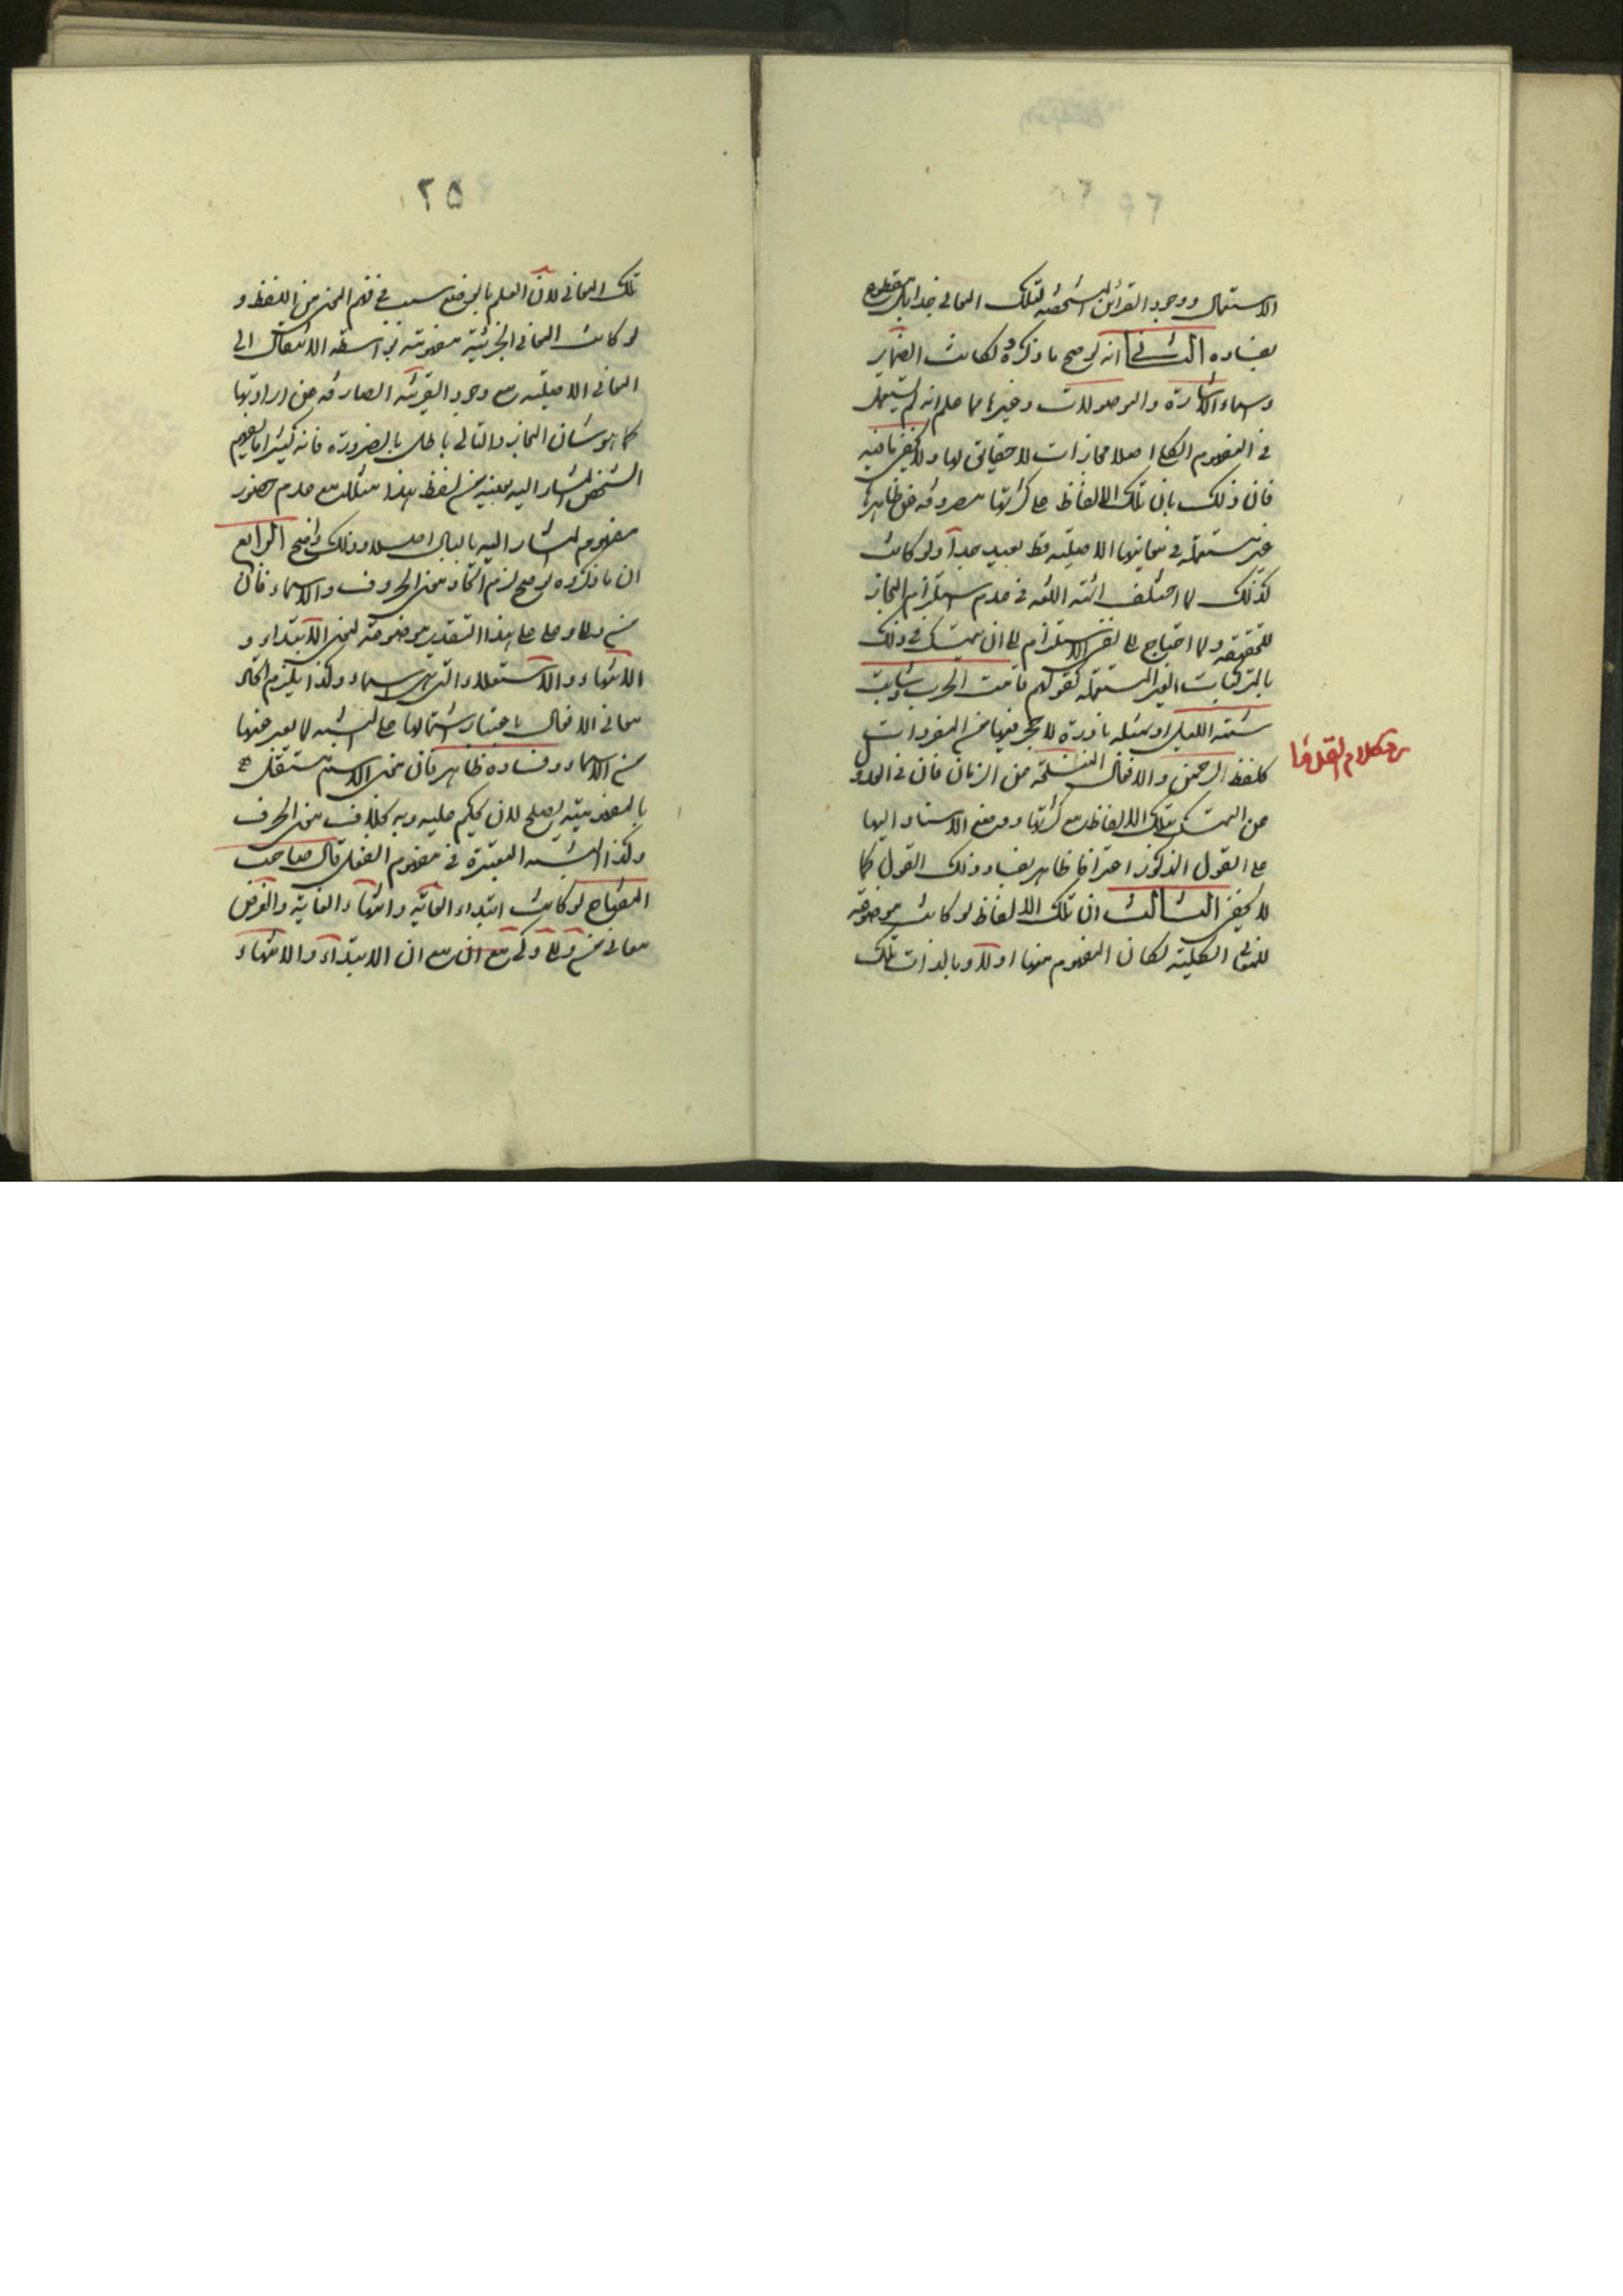 الاستعمال ووجود القرائن المشخصة لتلك المعانى فذا باطل مقطوع
بفساده الثانى انه لو صح ما ذكروه لكانت الضماير
واسماء الاشارة والموصولات وغيرها مما علم انه لم يستعمل
فى المفهوم الكلى اصلا مجازات لا حقايق لها ولا يخفى ما فيه
فان ذلك بان تلك الالفاظ على كثرتها مصروفه عن ظاهرها
غير مستعمله فى معانيها الاصليه قط بعيد جدا ولو كانت
كذلك لما اختلف ائمة اللغه فى عدم استلزام المجاز
للحقيقه ولما احتاج على نفى الاستلزام الى ان يتمسك فى ذلك
بالمركبات الغير المستعمله كقولهم قامت الحرب وشابت
لمة الليل او امثله نادرة لا حجر فيها من المفردات
كلفظ الرحمن والافعال المنسلخة عن الزمان فان فى العدول
عن التمسك بتلك الالفاظ مع كثرتها ووضع الاستناد اليها
على القول المذكور اعترافا ظاهر بفساد ذلك القول كما
لا يخفى الثالث ان تلك الالفاظ لو كانت موضوعة
للمعانى الكلية لكان المفهوم منها اولا وبالذات تلك
٢٥
تلك المعانى لان العلم بالوضع سبب فى فهم المعنى من اللفظ و
لو كانت المعانى الجزئية مفهومة بواسطه الانتقال الى
المعانى الاصلية مع وجود القرينه الصارفه عن ارادتها
كما هو شان المجاز والتالى باطل بالضرورة فانه كثيرا ما يفهم
الشخص المشار اليه بعينه من لفظ هذا مثلا مع عدم حضور
مفهوم المشار اليه بالبال اصلا وذلك واضح الرابع
ان ما ذكروه لو صح لزم اتحاد معنى الحروف والاسماء فان
من والى وعلى على هذا التقدير موضوعة لمعنى الابتداء و
الانتهاء والاستعلاء التى هى اسماء وكذا يلزم اتحاد
معانى الافعال باعتبار اشتمالها على النسبه لما يعبر عنها
من الاسماء وفساده ظاهر فان معنى الاسم مستقل
بالمفهومية يصلح لان يحكم عليه وبه بخلاف معنى الحرف
وكذا النسبه المعتبرة فى مفهوم الفعل قال صاحب
المفتاح لو كانت ابتداء الغاية وانتهاء الغاية والغرض
معانى من والى وكى مع ان مع ان الابتداء والانتهاء